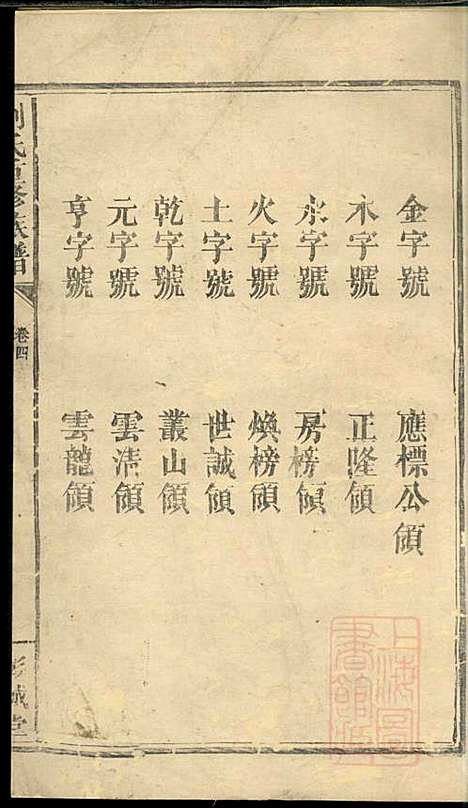 金字號 應標公領
木字號 正隆領
水字號 房榜領
火字號 煥榜領
土字號 世誠領
乾字號 叢山領
元字號 雲清領
亨字號 雲龍領
劉氏重修族譜 卷四 彭城堂
上海圖書館藏